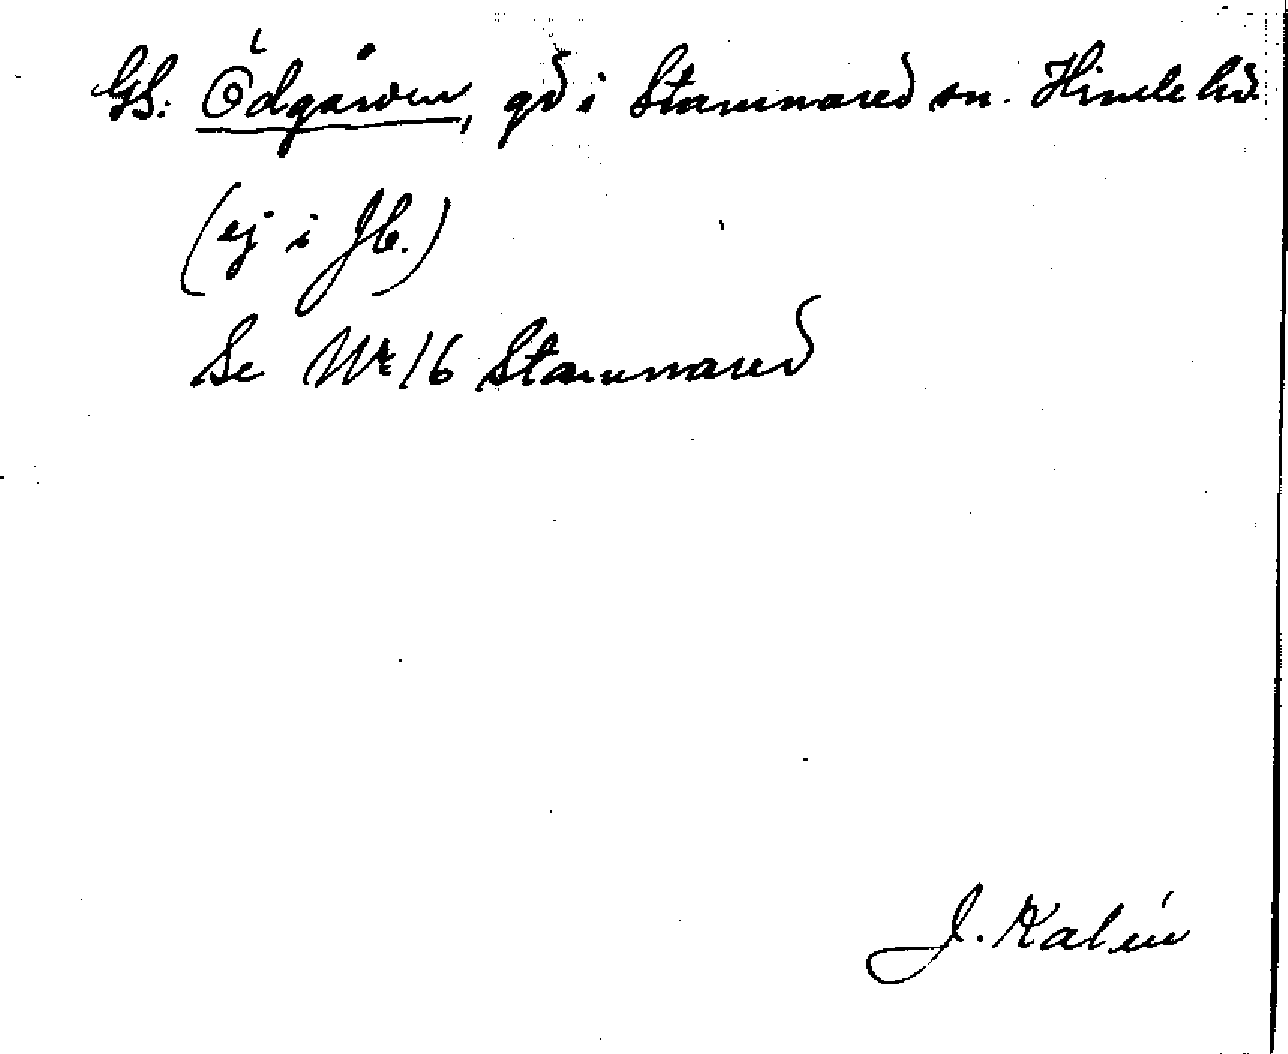 GS. Ödgården, gd i Stamnared sn. Himle hd.
(ej i Jb.)
Se Nr 16 Stamnared
J. Kalén